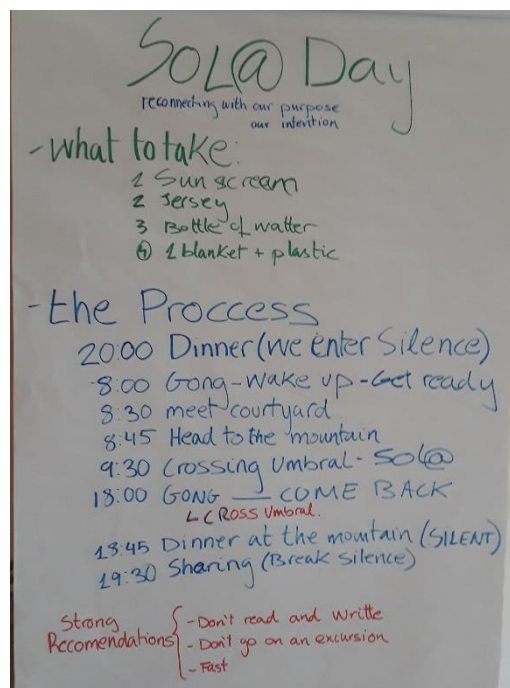 SOL@ Day
reconnecting with our purpose
our intention
- What to take:
1 Sun scream
2 Jersey
3 Bottle of watter
4 1 blanket + plastic
- the Proccess
20:00 Dinner (We enter Silence)
8:00 Gong - Wake up - Get ready
8:30 meet courtyard
8:45 Head to the mountain
9:30 Crossing Umbral - SOL@
18:00 GONG — COME BACK
L CROSS Umbral.
18:45 Dinner at the mountain (SILENT)
19:30 Sharing (Break Silence)
Strong
Recomendations
- Don't read and writte
- Don't go on an excursion
- Fast